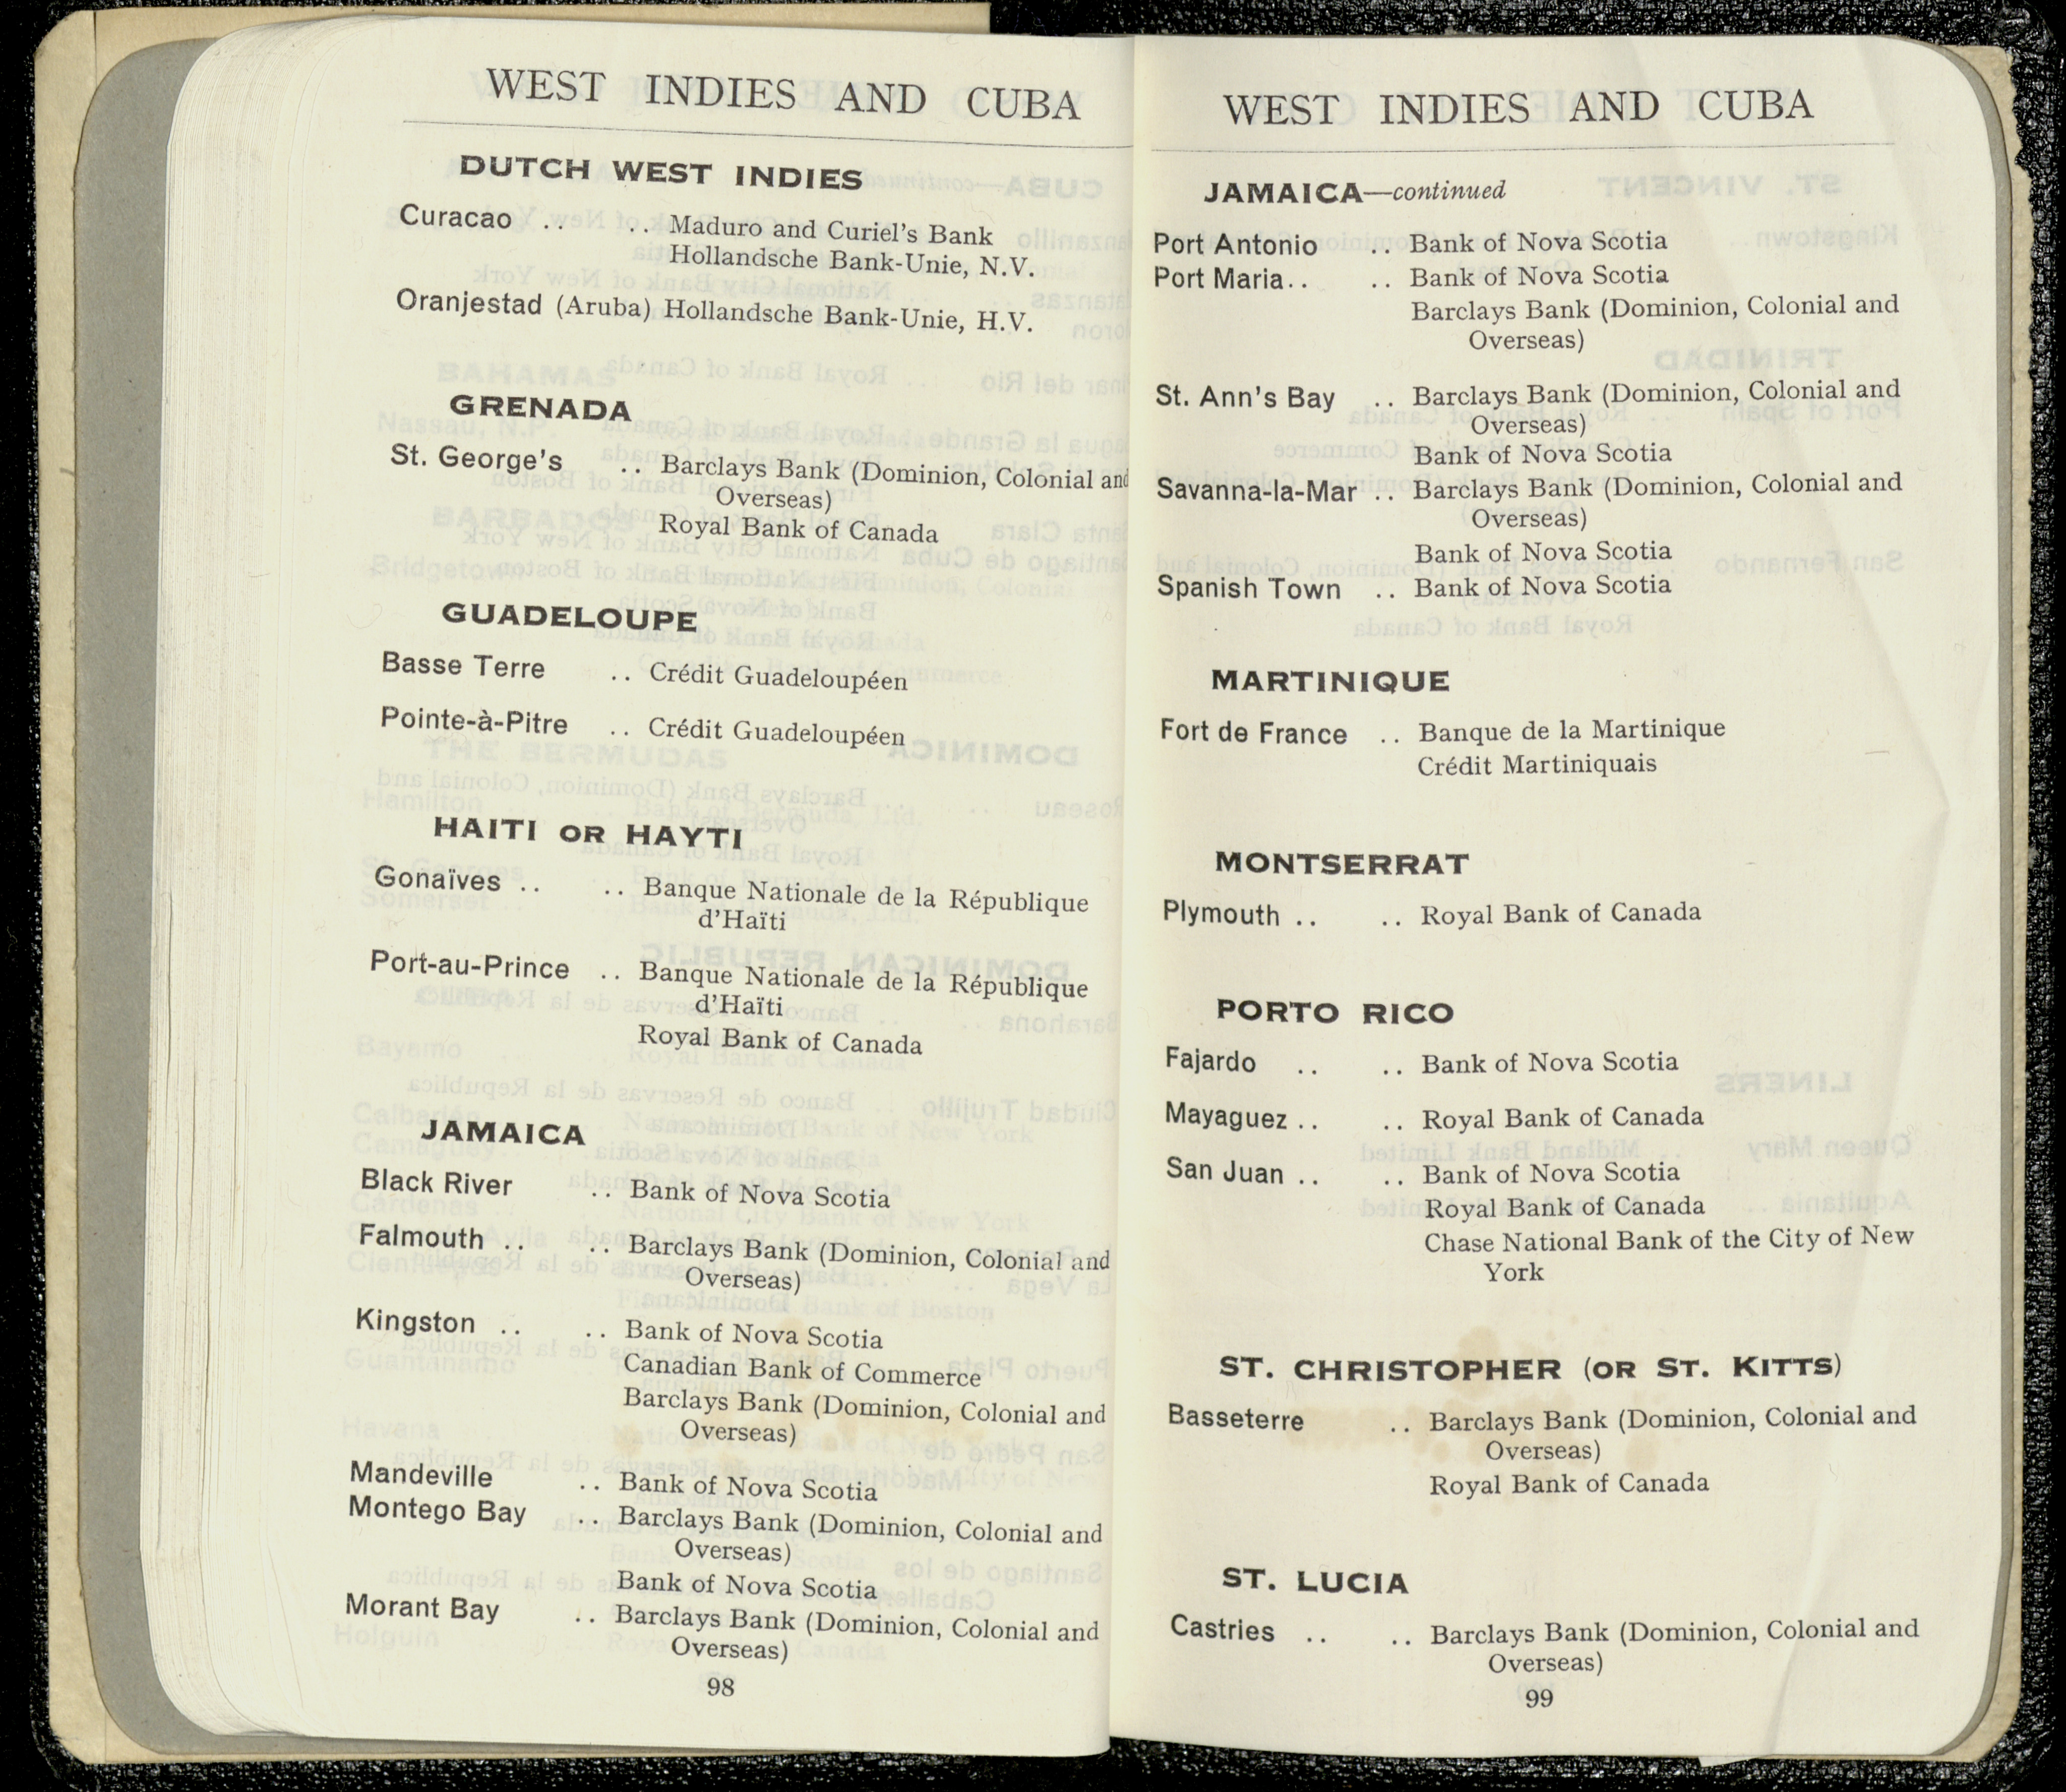 WEST INDIES AND CUBA
DUTCH WEST INDIES
Curacao .. .. Maduro and Curiel's Bank
Hollandsche Bank-Unie, N.V.
Oranjestad (Aruba) Hollandsche Bank-Unie, H.V.
GRENADA
St. George's .. Barclays Bank (Dominion, Colonial and
Overseas)
Royal Bank of Canada
GUADELOUPE
Basse Terre .. Crédit Guadeloupéen
Pointe-à-Pitre .. Crédit Guadeloupéen
HAITI OR HAYTI
Gonaïves .. .. Banque Nationale de la République
d'Haïti
Port-au-Prince .. Banque Nationale de la République
d'Haïti
Royal Bank of Canada
JAMAICA
Black River .. Bank of Nova Scotia
Falmouth .. .. Barclays Bank (Dominion, Colonial and
Overseas)
Kingston .. .. Bank of Nova Scotia
Canadian Bank of Commerce
Barclays Bank (Dominion, Colonial and
Overseas)
Mandeville .. Bank of Nova Scotia
Montego Bay .. Barclays Bank (Dominion, Colonial and
Overseas)
Bank of Nova Scotia
Morant Bay .. Barclays Bank (Dominion, Colonial and
Overseas)
98
WEST INDIES AND CUBA
JAMAICA—continued
Port Antonio .. Bank of Nova Scotia
Port Maria.. .. Bank of Nova Scotia
Barclays Bank (Dominion, Colonial and
Overseas)
St. Ann's Bay .. Barclays Bank (Dominion, Colonial and
Overseas)
Bank of Nova Scotia
Savanna-la-Mar .. Barclays Bank (Dominion, Colonial and
Overseas)
Bank of Nova Scotia
Spanish Town .. Bank of Nova Scotia
MARTINIQUE
Fort de France .. Banque de la Martinique
Crédit Martiniquais
MONTSERRAT
Plymouth .. .. Royal Bank of Canada
PORTO RICO
Fajardo .. .. Bank of Nova Scotia
Mayaguez .. .. Royal Bank of Canada
San Juan .. .. Bank of Nova Scotia
Royal Bank of Canada
Chase National Bank of the City of New
York
ST. CHRISTOPHER (OR ST. KITTS)
Basseterre .. Barclays Bank (Dominion, Colonial and
Overseas)
Royal Bank of Canada
ST. LUCIA
Castries .. .. Barclays Bank (Dominion, Colonial and
Overseas)
99